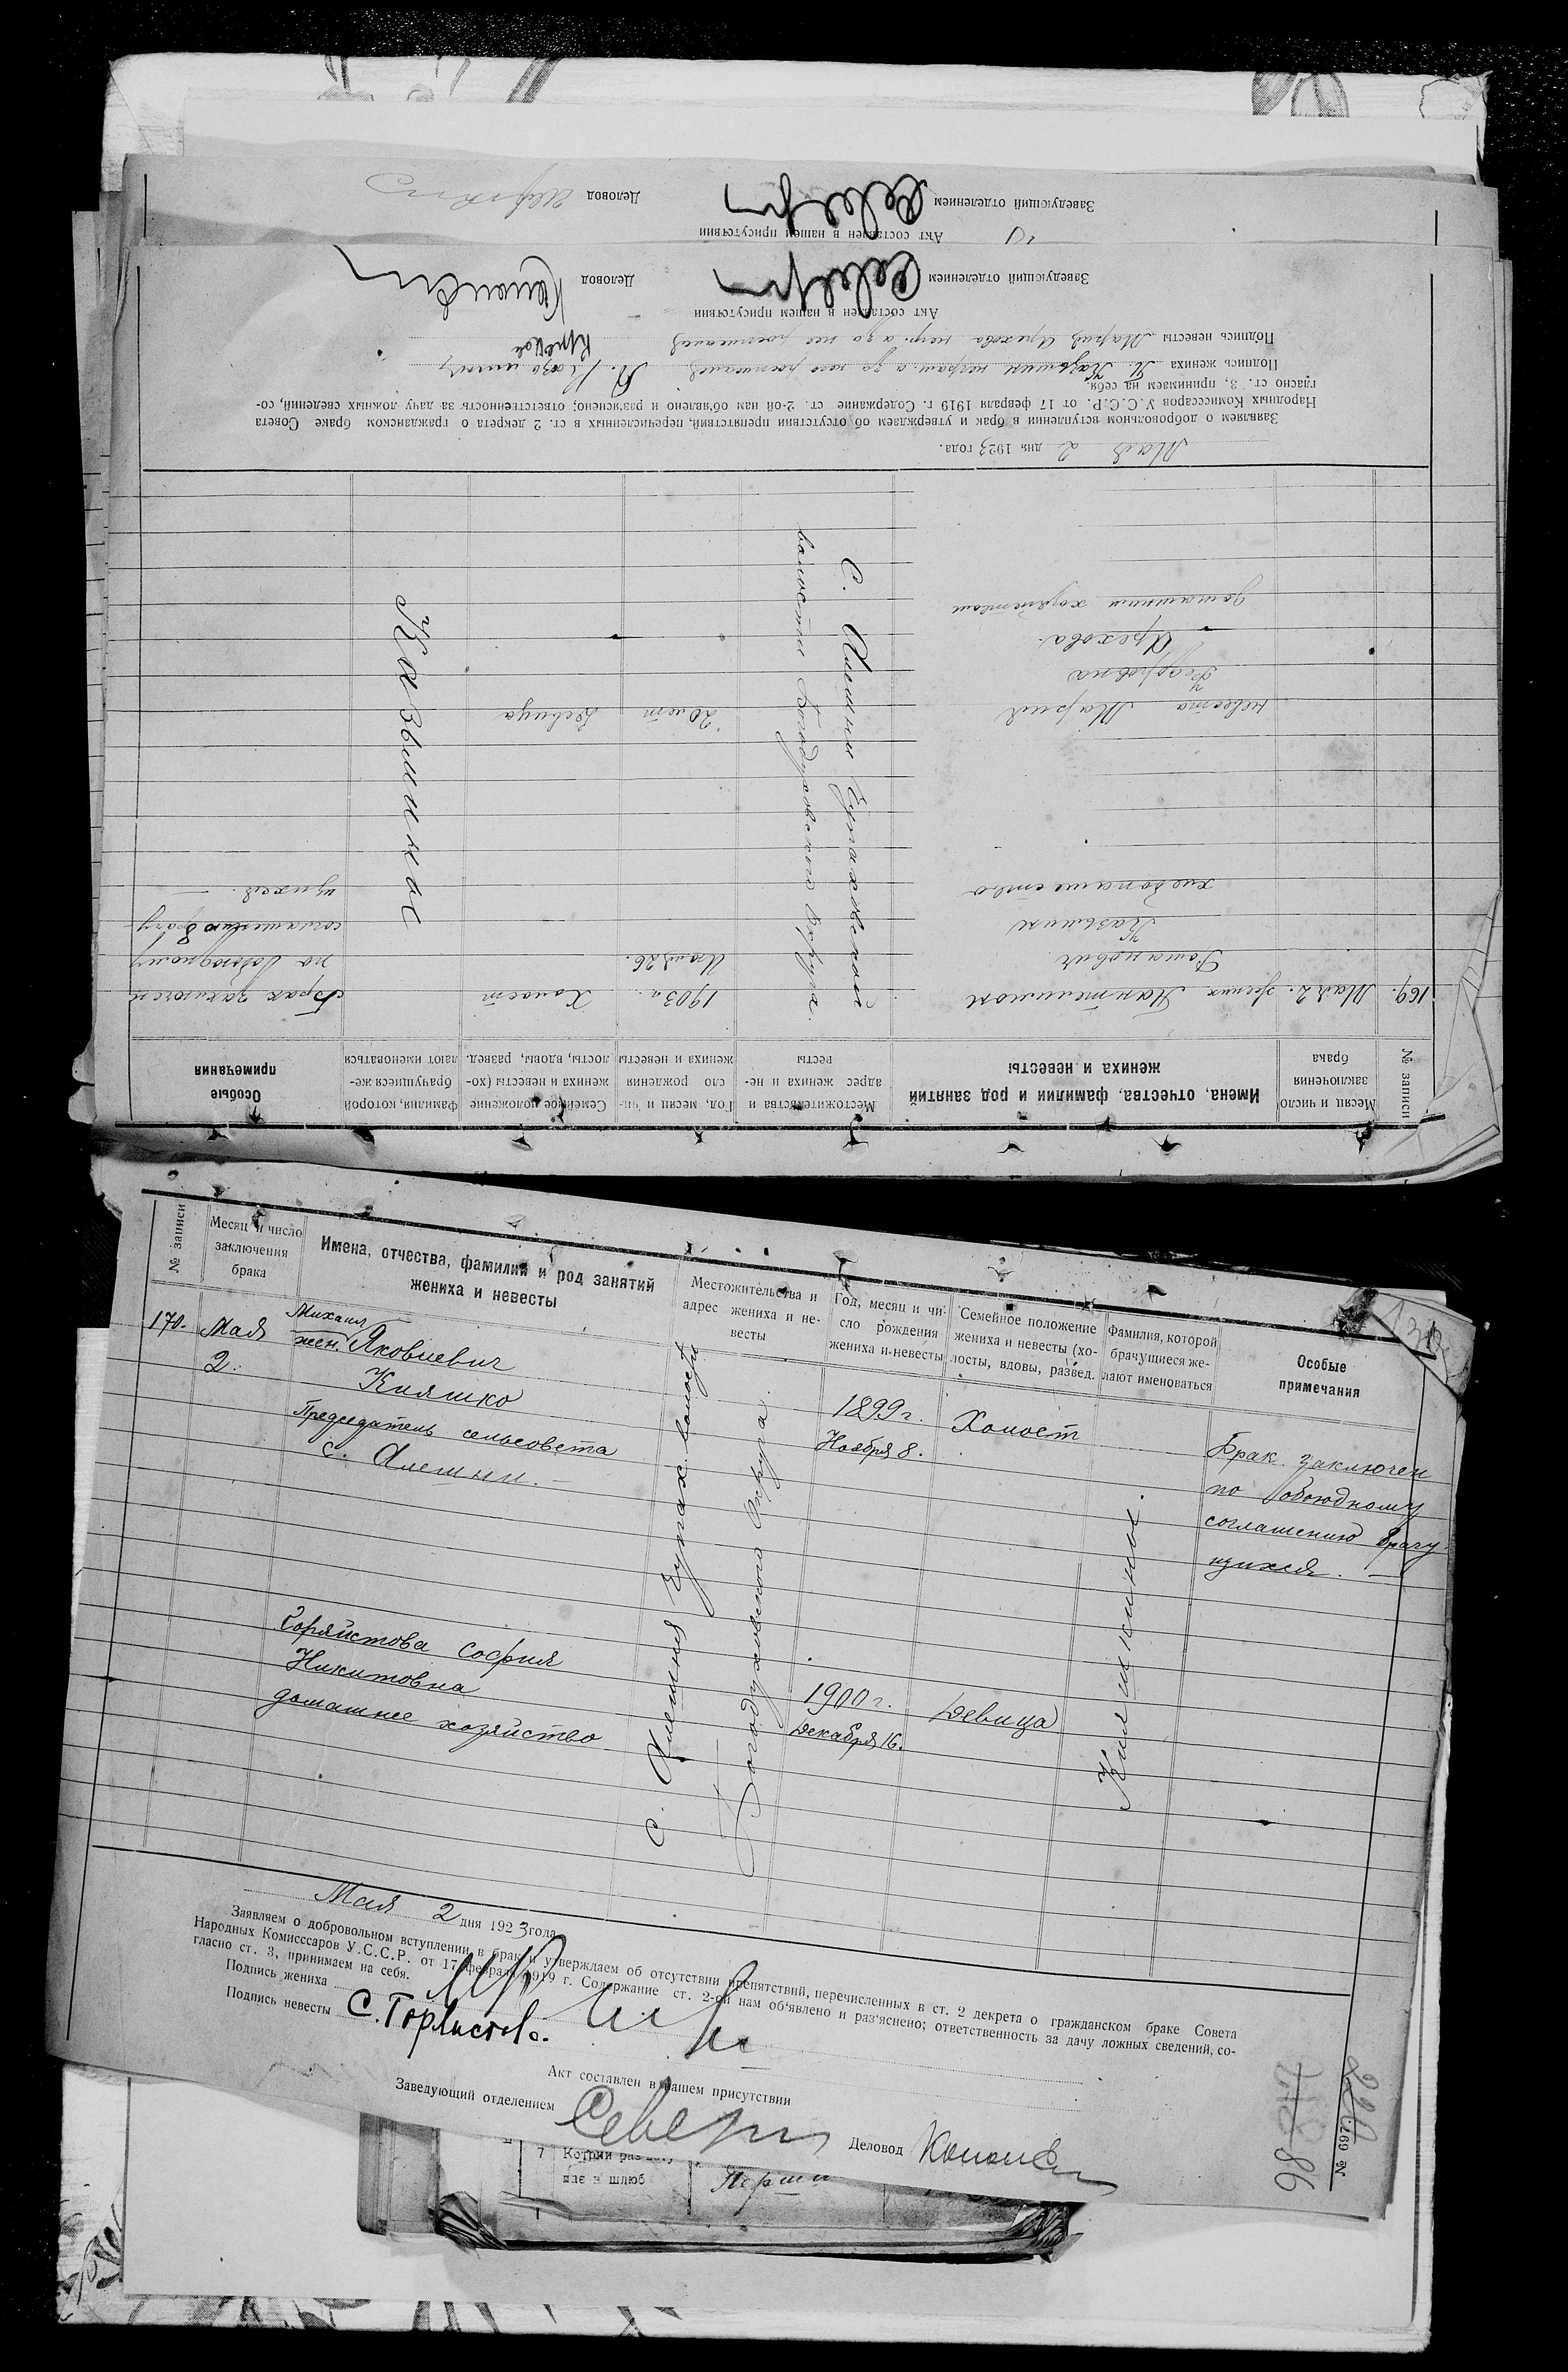 № записи
Месяц и число
заключения
брака
Имена, отчества, фамилии и род занятий
жениха и невесты
Местожительства и
адрес жениха и не-
весты
Год, месяц и чи-
сло рождения
жениха и невесты
Семейное положение
жениха и невесты (хо-
лосты, вдовы, развед.
Фамилия, которой
брачущиеся же-
лают именоваться
Особые
примечания
169.
Мая 2.
жених Пантелимон
Романович
Казьмин
хлебопашество
невеста Мария
Федоровна
Орехова.
домашним хозяйством
С. Алешни Чупаховской
волости Богодуховского Округа.
1903 г.
Июля 26.
20 лет
Холост
Девица
Казьмины
Брак заключен
по обоюдному
соглашению брачу
щихся.
Мая 2 дня 1923 года.
Заявляем о добровольном вступлении в брак и утверждаем об отсутствии препятствий, перечисленных в ст. 2 декрета о гражданском браке Совета
Народных Комиссаров У.С.С.Р. от 17 февраля 1919 г. Содержание ст. 2-ой нам об'явлено и раз'яснено; ответственность за дачу ложных сведений, со-
гласно ст. 3, принимаем на себя.
Подпись жениха П. Казьмин неграм. а за него росписался
Подпись невесты Мария Орехова негр. а за нее росписался
Акт составлен в нашем присутствии
Заведующий отделением
Деловод
Акт составлен в нашем присутствии
Заведующий отделением
Деловод
№ записи
Месяц и число
заключения
брака
Имена, отчества, фамилии и род занятий
жениха и невесты
Местожительства и
адрес жениха и не-
весты
Год, месяц и чи-
сло рождения
жениха и невесты
Семейное положение
жениха и невесты (хо-
лосты, вдовы, развед.
Фамилия, которой
брачущиеся же-
лают именоваться
Особые
примечания
170.
Мая
2.
Михаил
жен. Яковлевич
Кияшко
Председатель сельсовета
с. Алешни.
Горяистова София
Никитовна
домашнее хозяйство
с. Алешня Чупах. волости
Богодуховского Округа.
1899 г.
Ноября 8.
1900 г.
Декабря 16.
Холост
Девица
Кияшкины.
Брак заключен
по обоюдному
соглашению брачу-
щихся.
Мая 2 дня 1923 года.
Заявляем о добровольном вступлении в брак и утверждаем об отсутствии препятствий, перечисленных в ст. 2 декрета о гражданском браке Совета
Народных Комисссаров У.С.С.Р. от 17 февраля 1919 г. Содержание ст. 2-ой нам об'явлено и раз'яснено; ответственность за дачу ложных сведений, со-
гласно ст. 3, принимаем на себя.
Подпись жениха
Подпись невесты С. Горяистова.
Акт составлен в нашем присутствии
Заведующий отделением
Деловод
№ 697.
86
7
шлюб